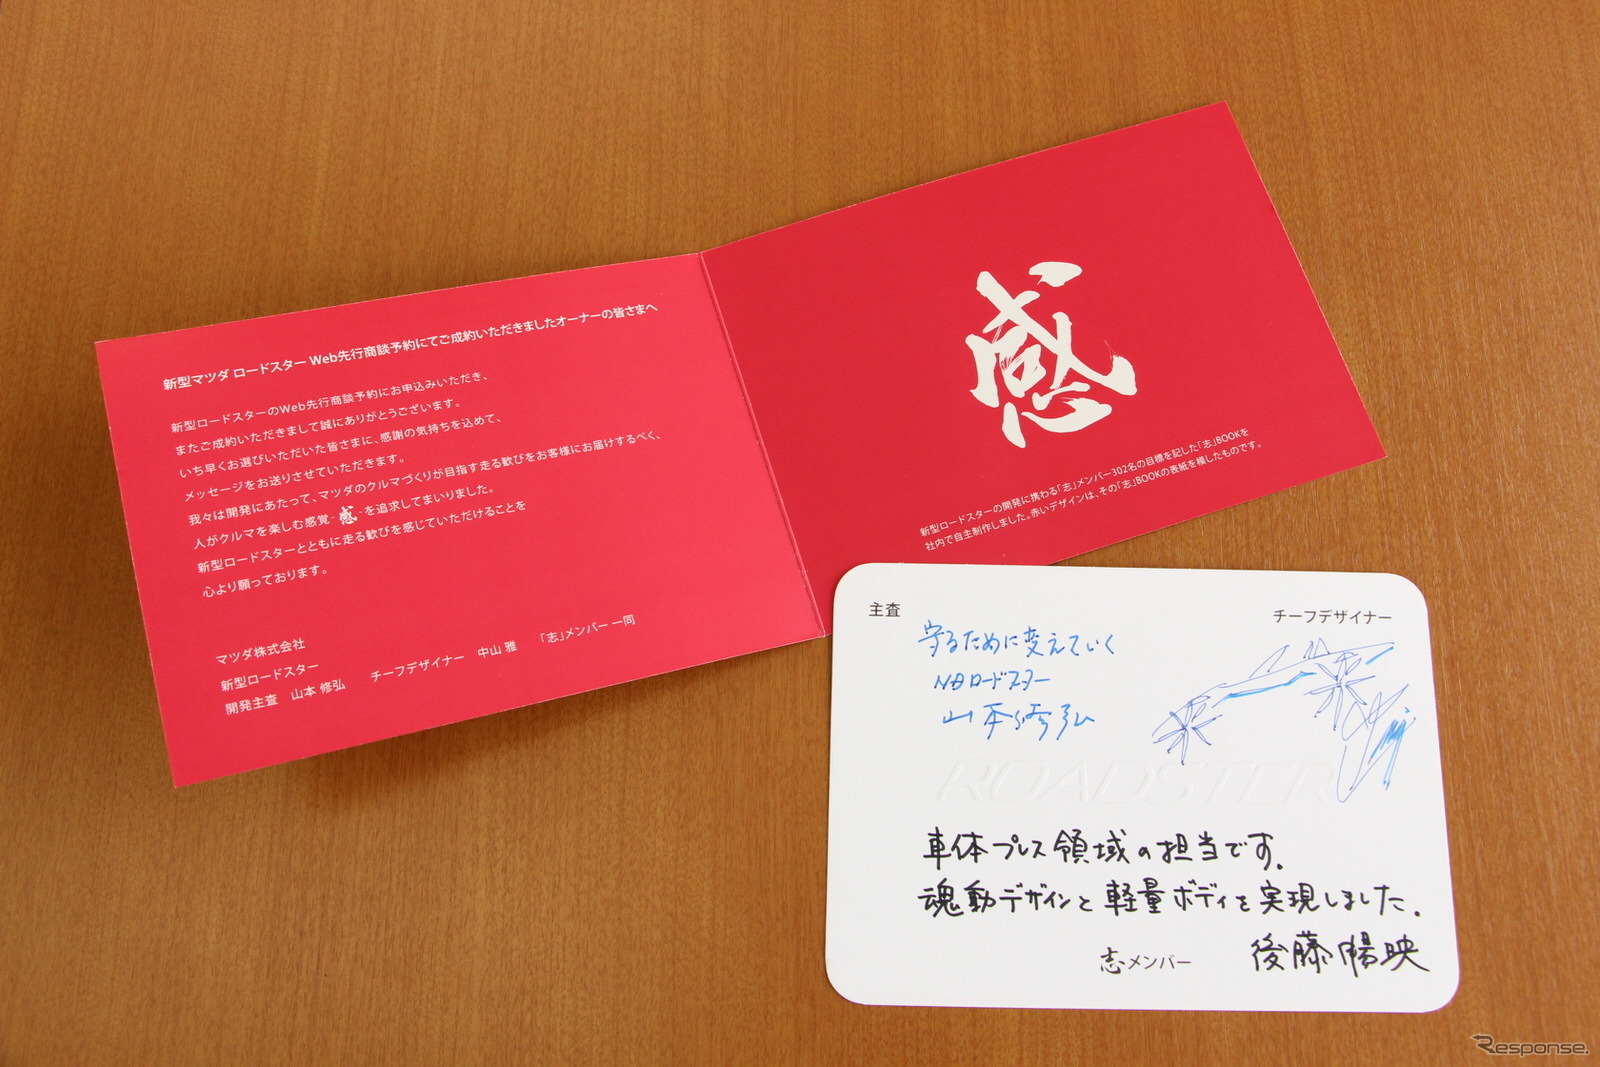 新型マツダ ロードスター Web先行商談予約にてご成約いただきましたオーナーの皆さまへ
新型ロードスターのWeb先行商談予約にお申込みいただき、
またご成約いただきまして誠にありがとうございます。
いち早くお選びいただいた皆さまに、感謝の気持ちを込めて、
メッセージをお送りさせていただきます。
我々は開発にあたって、マツダのクルマづくりが目指す走る歓びをお客様にお届けするべく、
人がクルマを楽しむ感覚-感-を追求してまいりました。
新型ロードスターとともに走る歓びを感じていただけることを
心より願っております。
マツダ株式会社
新型ロードスター
開発主査 山本 修弘 チーフデザイナー 中山 雅 「志」メンバー 一同
感
新型ロードスターの開発に携わる「志」メンバー302名の目標を記した「志」BOOKを
社内で自主制作しました。赤いデザインは、その「志」BOOKの表紙を模したものです。
主査
チーフデザイナー
守るために変えていく
ロードスター
山本修弘
ROADSTER
車体プレス領域の担当です.
魂動デザインと軽量ボディを実現しました.
志メンバー
後藤陽映
Response.